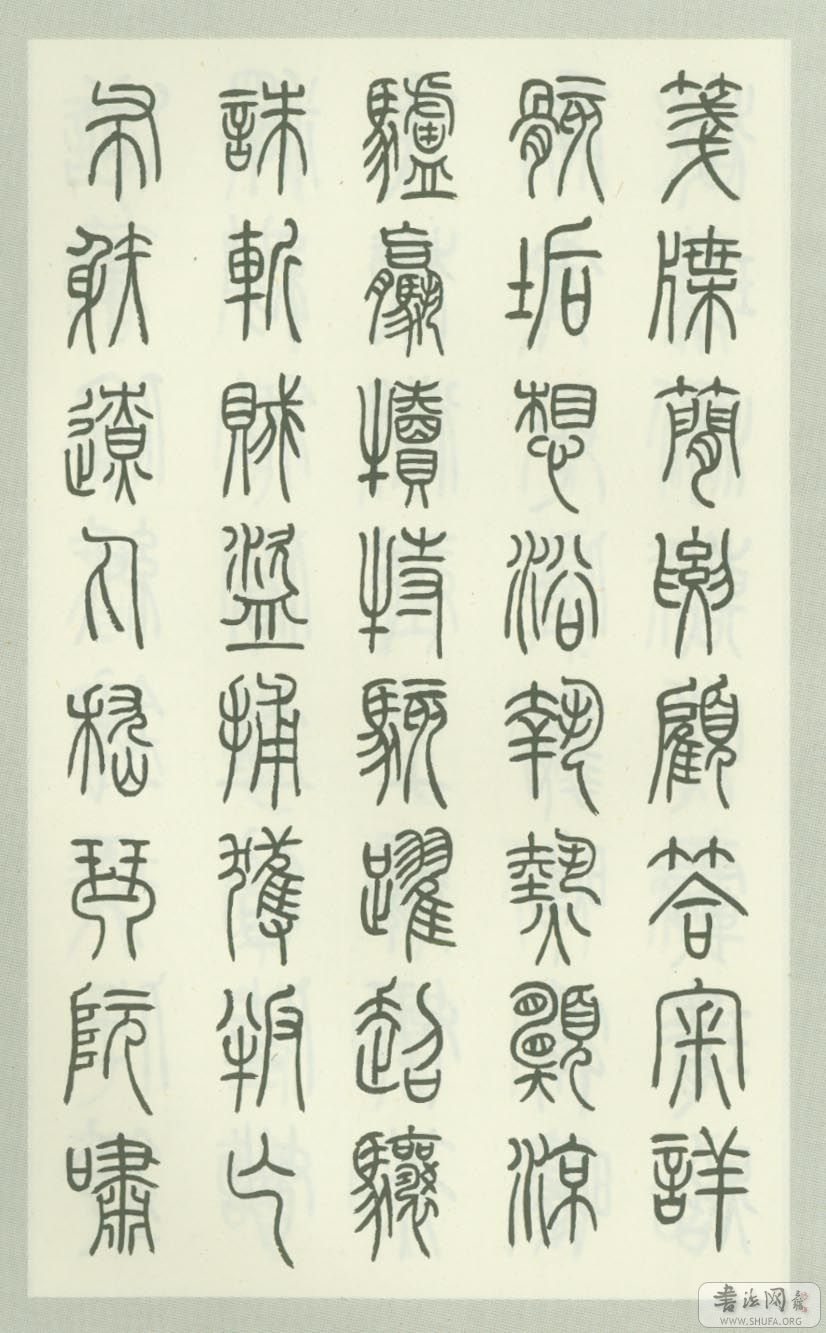 牋牒簡要顧答審詳
骸垢想浴執熱願涼
驢騾犢特駭躍超驤
誅斬賊盜捕獲叛亡
布射遼丸嵇琴阮嘯
書法网
WWW.SHUFA.ORG